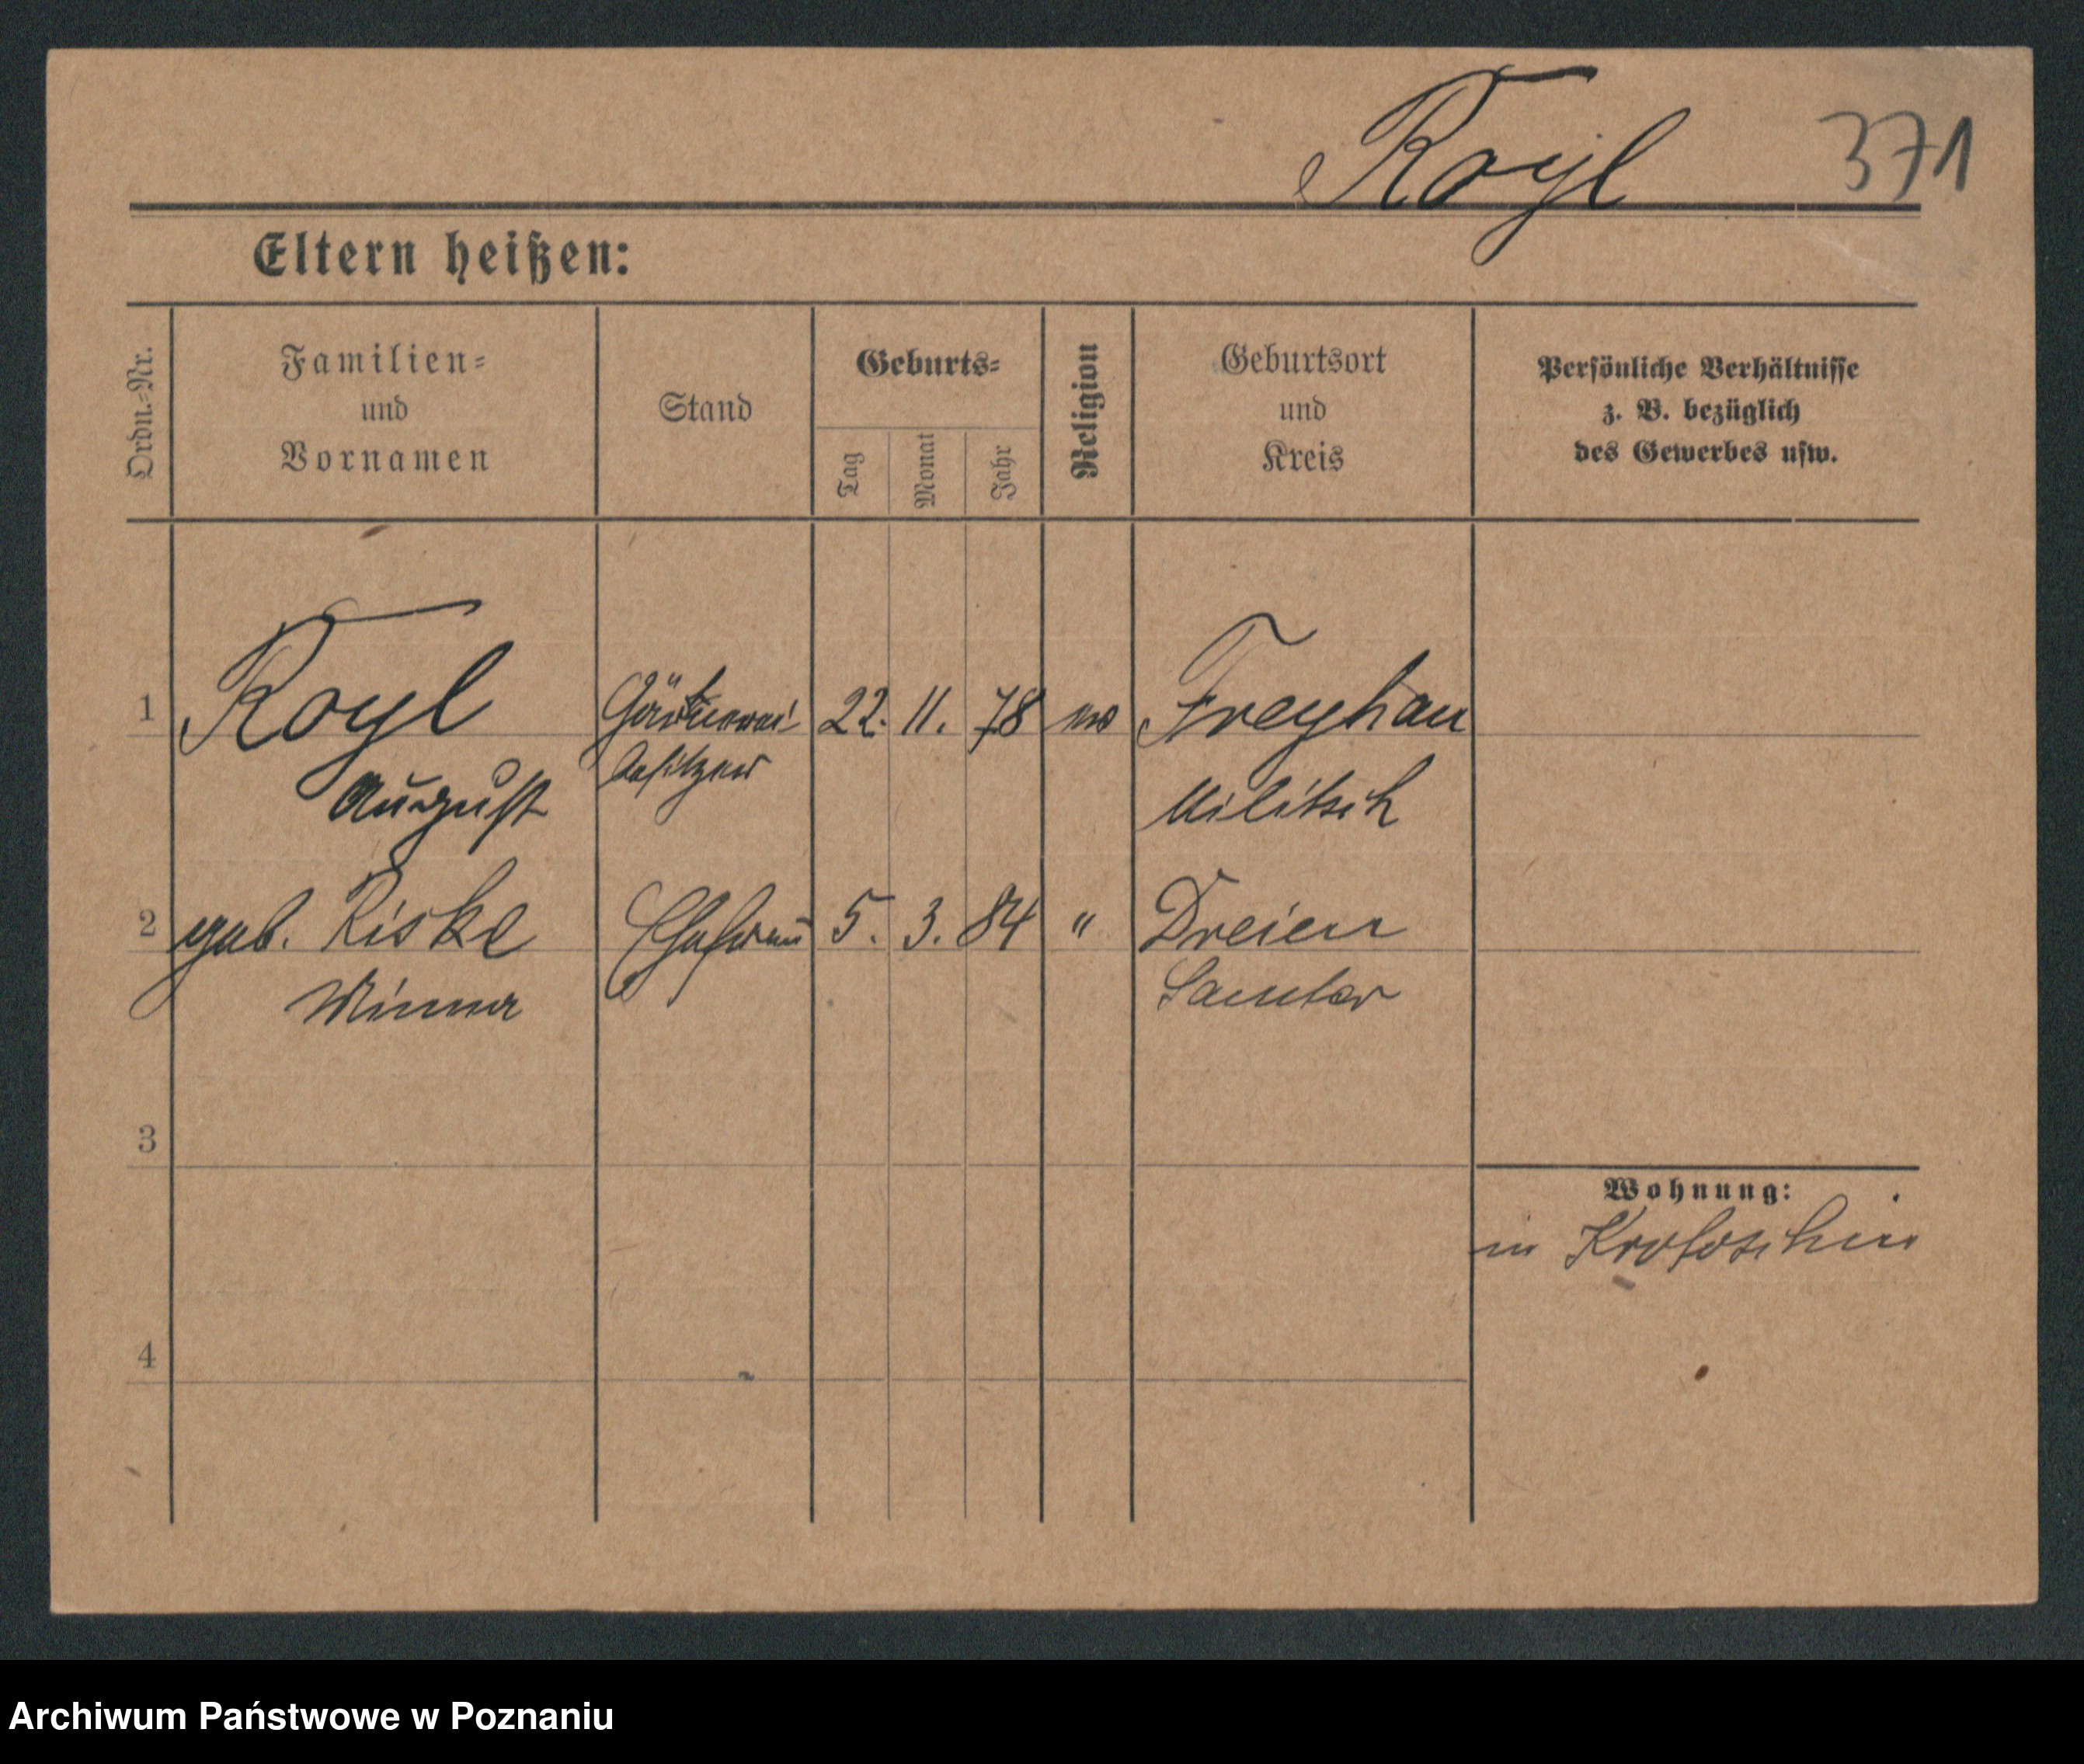 Royl 371
Eltern heißen:
Ordn.-Nr.
Familien-
und
Vornamen
Stand
Geburts-
Tag
Monat
Jahr
Religion
Geburtsort
und
Kreis
Persönliche Verhältnisse
z. B. bezüglich
des Gewerbes usw.
1 Royl Gärtnerei- 22. 11. 78 ev Freyhan
August besitzer Militsch
2 geb. Riske Ehefrau 5. 3. 84 " Dreien
Minna Samter
3
Wohnung:
in Krotoschin
4
Archiwum Państwowe w Poznaniu